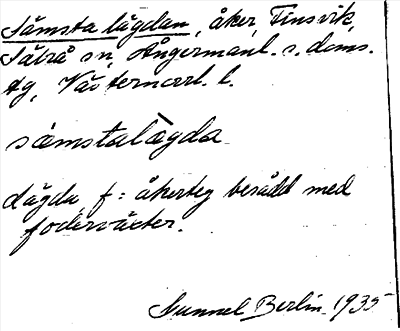 Sämsta lägdan, åker, Finsvik,
Säbrå sn, Ångermanl. s. doms.
tg, Västernorrl. l.
sämstalægda
lägda, f: åkerteg besådd med
foderväxter.
Gunnel Berlin 1935